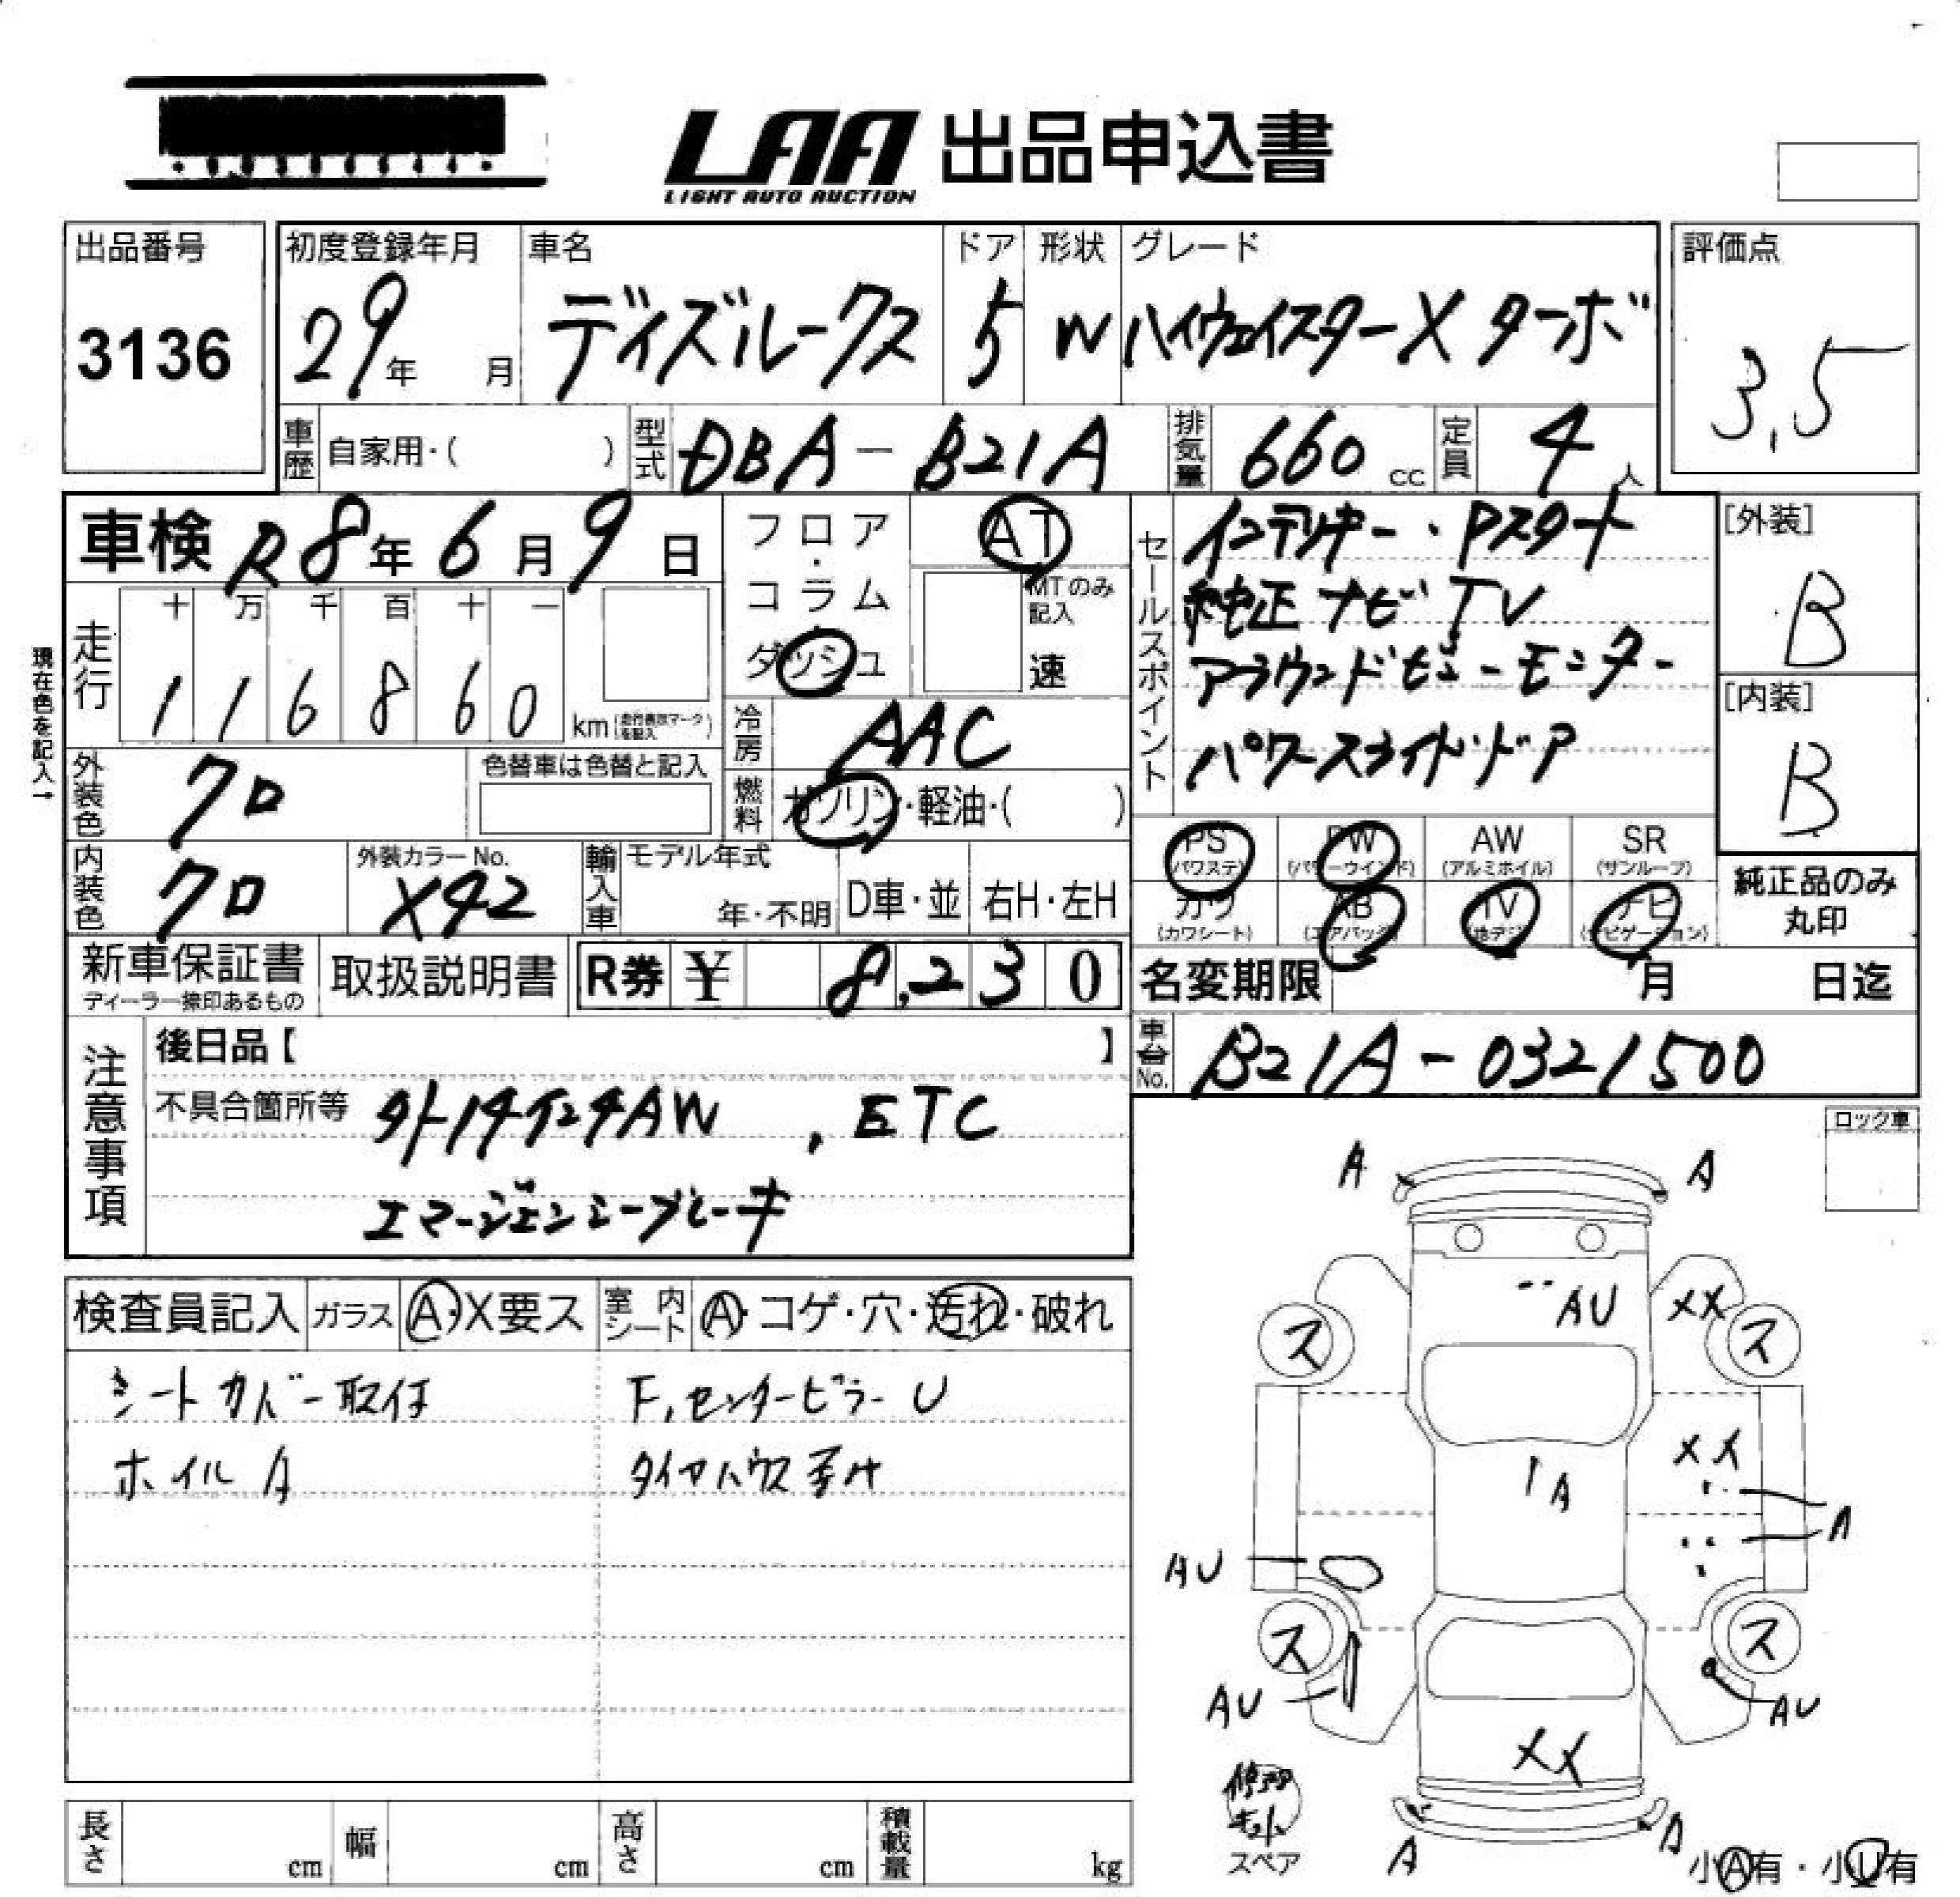 LAA 出品申込書
LIGHT AUTO AUCTION
出品番号 3136
初度登録年月 29年 月
車名 デイズルークス
ドア 5
形状 W
グレード ハイウェイスターX ターボ
評価点 3.5
車歴 自家用・( )
型式 DBA-B21A
排気量 660 cc
定員 4人
車検 R8年6月9日
フロア・コラム・ダッシュ
AT
MTのみ記入
速
セールスポイント
インテリキー・Pスタート
純正ナビTV
アラウンドビューモニター
パワースライドドア
[外装] B
[内装] B
現在色を記入→
走行 十 万 千 百 十 一
1 1 6 8 6 0 km (走行表示マークを記入)
冷房 AAC
外装色 クロ
色替車は色替と記入
燃料 ガソリン・軽油・( )
内装色 クロ
外装カラーNo. X42
輸入車 モデル年式 年・不明
D車・並 右H・左H
PS (パワステ) PW (パワーウインド) AW (アルミホイル) SR (サンルーフ)
カワ (カワシート) AB (エアバック) TV (地デジ) ナビ (ナビゲーション)
純正品のみ丸印
新車保証書 ディーラー捺印あるもの
取扱説明書
R券 ¥ 8,230
名変期限 月 日迄
車台No. B21A-0321500
注意事項
後日品【 】
不具合箇所等 外14インチAW , ETC
エマージェンシーブレーキ
ロック車
検査員記入 ガラス A・X要ス 室内シート A・コゲ・穴・汚れ・破れ
シートカバー取付
ホイルA
F,センターピラーU
タイヤハウス
A A
AU XX
ス ス
XX
A
A
AU
ス ス
AU AU
XX
修理キット
スペア
A A
小A有・小U有
長さ cm 幅 cm 高さ cm 積載量 kg